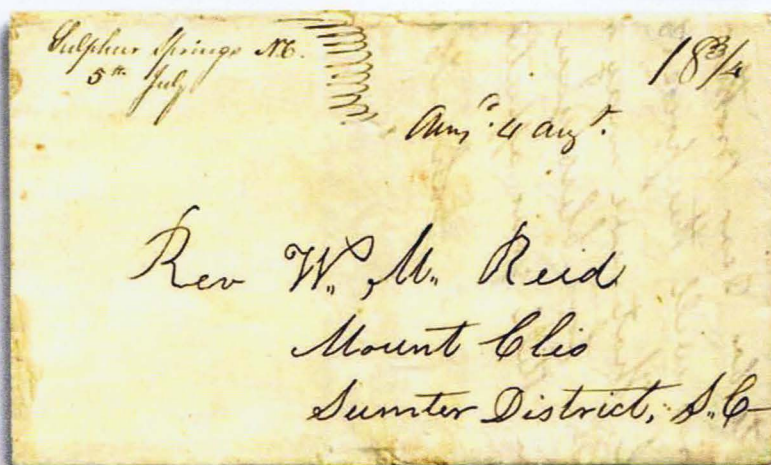 Sulphur Springs N.C.
5th July
18 3/4
Ansd. 4 Augt.
Rev W. M. Reid
Mount Clio
Sumter District, S.C